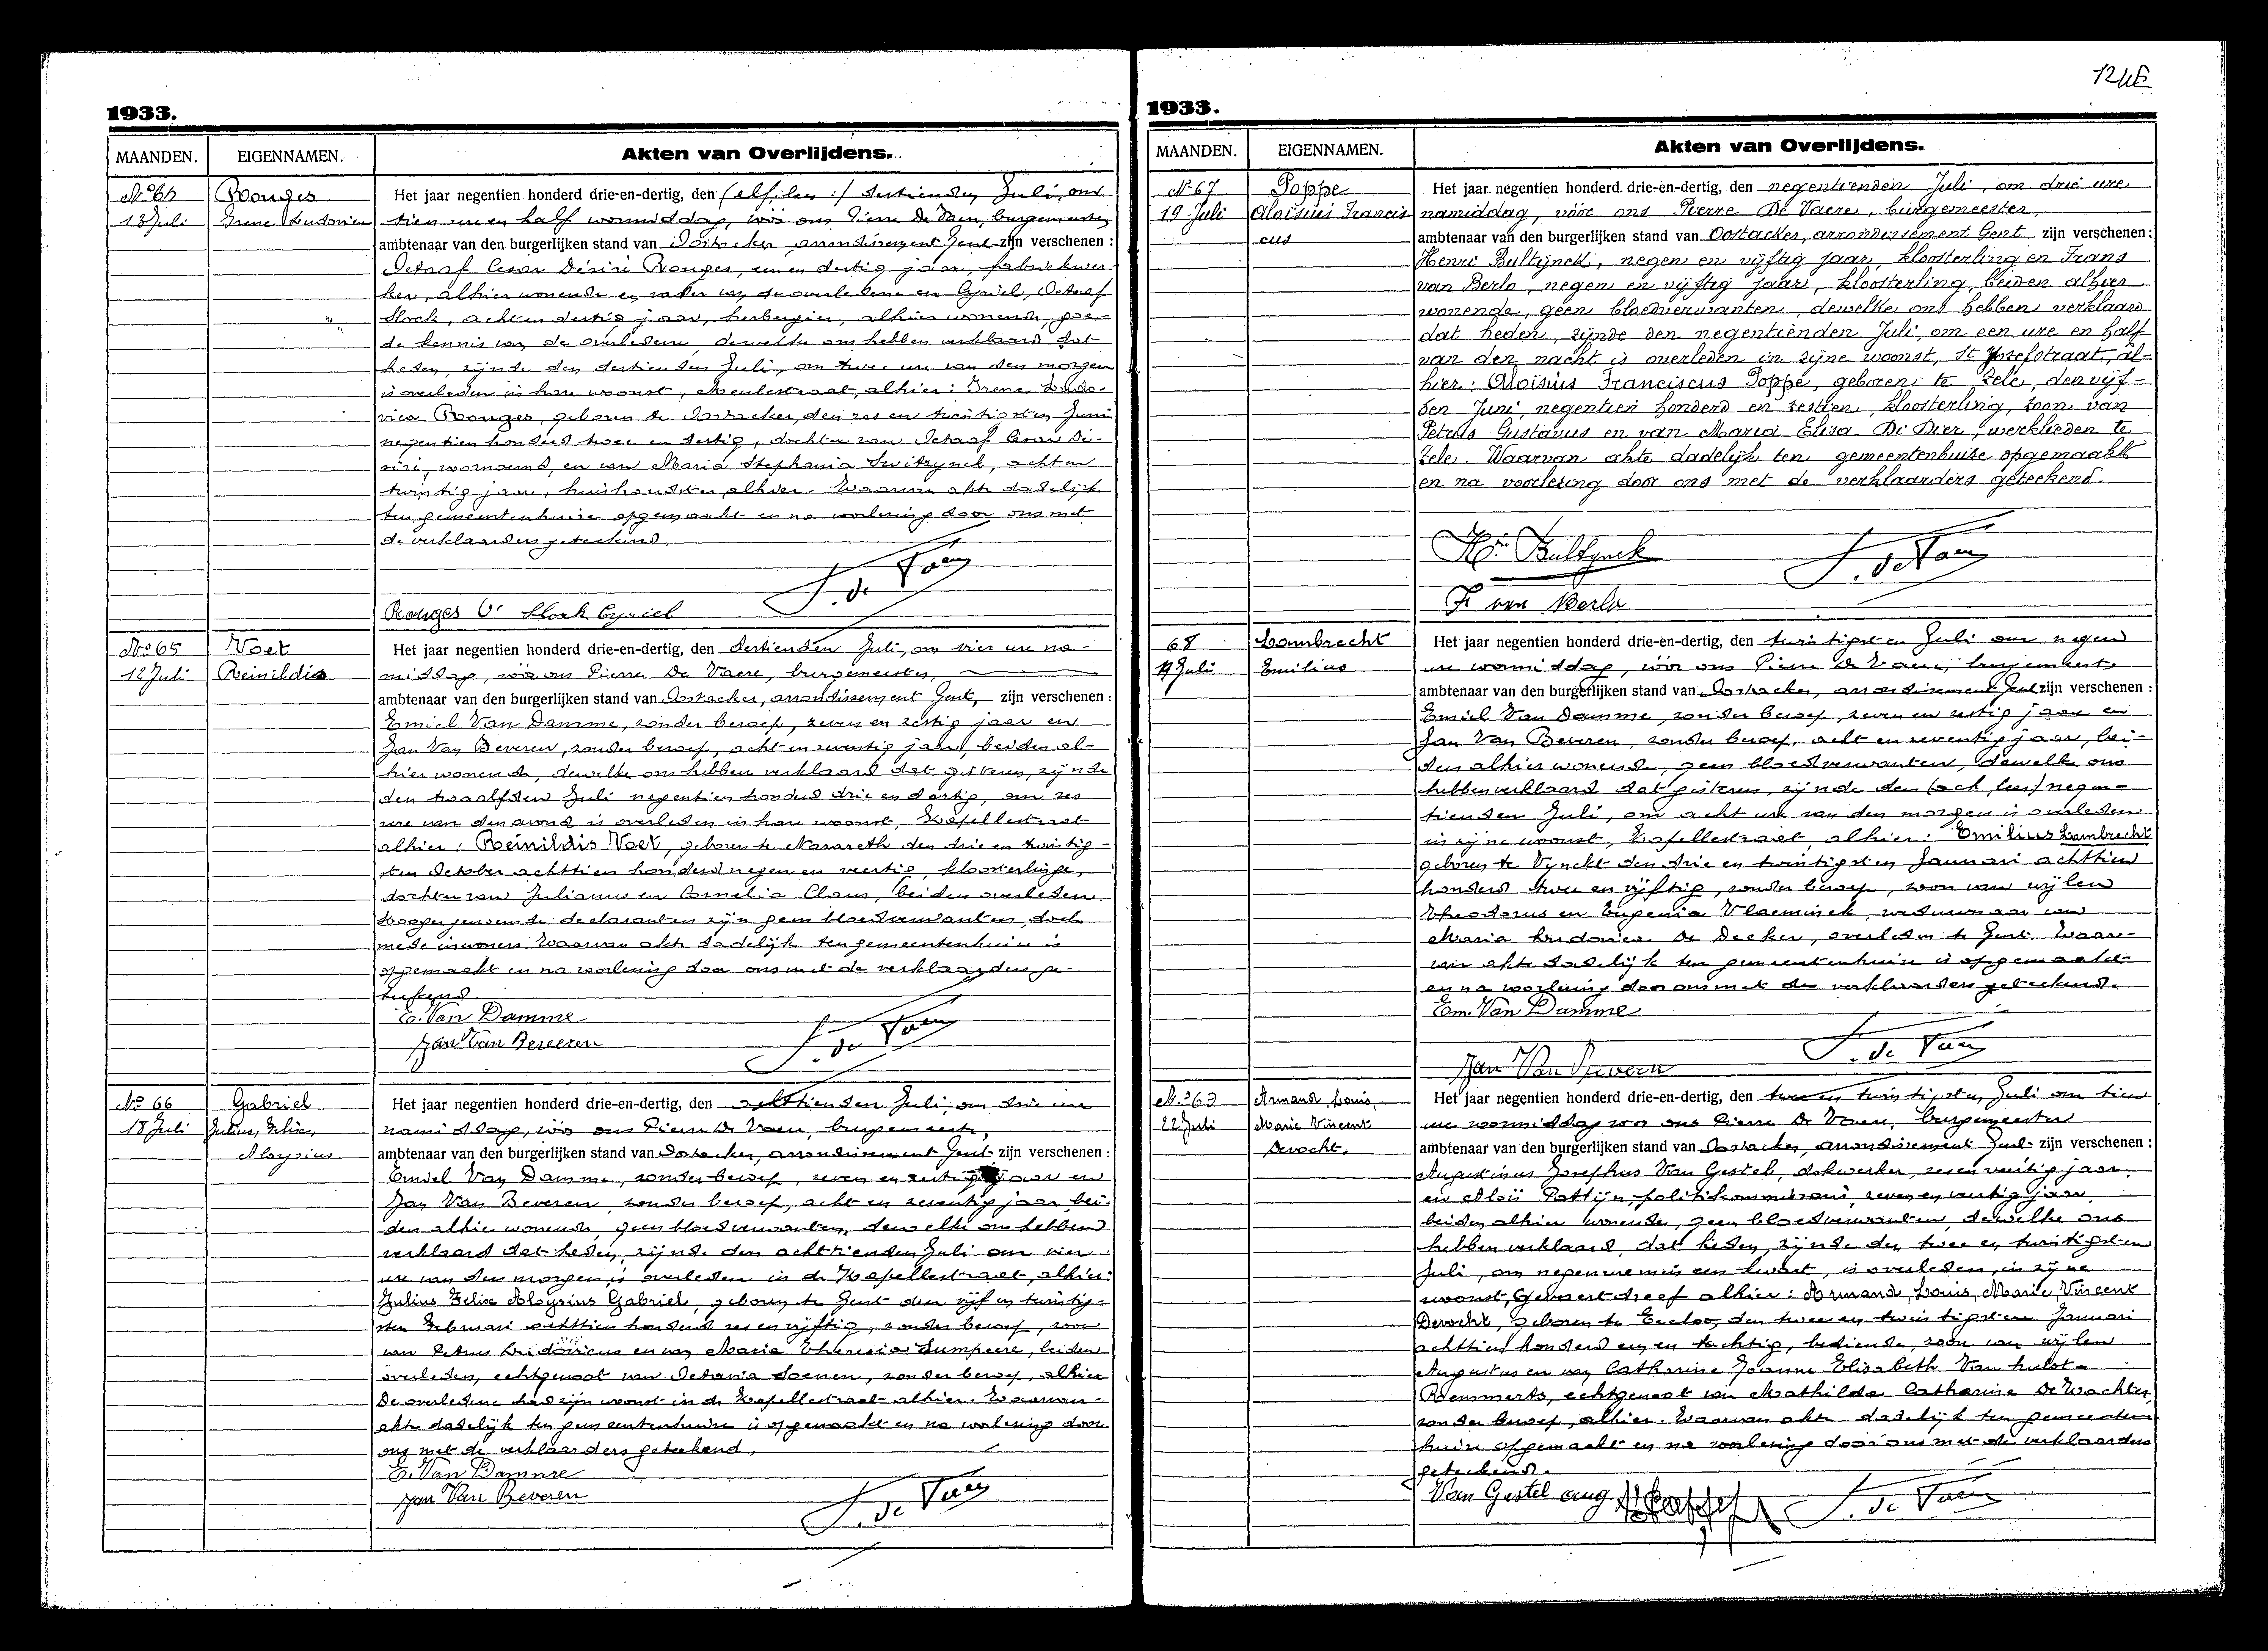 1933.
MAANDEN.
EIGENNAMEN.
Akten van Overlijdens.
13 Juli
Rouges
Irene Ludovica
Het jaar negentien honderd drie-en-dertig, den dertienden Juli, om
tien ure en half voormiddag, vóór ons Pierre De Vaere, burgemeester,
ambtenaar van den burgerlijken stand van Oostacker, arrondissement Gent zijn verschenen :
Octaaf Cesar Désiré Rouges, een en dertig jaar, fabriekwer-
ker, alhier wonende en vader van de overledene en Cyriel, Octaaf
Slock, acht en dertig jaar, herbergier, alhier wonende, goe-
de kennis van de overledene, dewelke ons hebben verklaard dat
heden, zijnde den dertienden Juli, om twee ure van den morgen
is overleden in hare woonst, Meulestraat, alhier: Irene Ludo-
vica Rouges, geboren te Oostacker, den zes en twintigsten Juni
negentien honderd twee en dertig, dochter van Octaaf Cesar Dé-
siré, voornoemd, en van Maria Stephania , acht en
twintig jaar, huishoudster, alhier. Waarvan akte dadelijk
ten gemeentenhuize opgemaakt en na voorlezing door ons met
de verklaarders geteekend.
P. de Vaere
Rouges O. Slock Cyriel
No 65
12 Juli
Voet
Reinildis
Het jaar negentien honderd drie-en-dertig, den dertienden Juli, om vier ure na-
middag, vóór ons Pierre De Vaere, burgemeester,
ambtenaar van den burgerlijken stand van Oostacker, arrondissement Gent, zijn verschenen :
Emiel Van Damme, zonder beroep, zeven en zestig jaar en
Jan Van Beveren, zonder beroep, acht en zeventig jaar, beiden al-
hier wonende, dewelke ons hebben verklaard dat gisteren, zijnde
den twaalfden Juli negentien honderd drie en dertig, om zes
ure van den avond is overleden in hare woonst, Kapellestraat
alhier: Reinildis Voet, geboren te Nazareth den drie en twintig-
sten October achttien honderd negen en veertig, kloosterlinge,
dochter van Julianus en Cornelia Claus, beiden overleden.
Hoogergenoemde declaranten zijn geen bloedverwanten, doch
mede inwoners. Waarvan akte dadelijk ten gemeentenhuize is
opgemaakt en na voorlezing door ons met de verklaarders ge-
teekend
E. Van Damme
Jan Van Beveren
P. de Vaere
No 66
18 Juli
Gabriel
Julius, Felix,
Aloysius
Het jaar negentien honderd drie-en-dertig, den achttienden Juli, om drie ure
namiddag, vóór ons Pierre De Vaere, burgemeester,
ambtenaar van den burgerlijken stand van Oostacker, arrondissement Gent zijn verschenen :
Emiel Van Damme, zonder beroep, zeven en zestig jaar en
Jan Van Beveren, zonder beroep, acht en zeventig jaar bei-
den alhier wonende, geen bloedverwanten, dewelke ons hebben
verklaard dat heden, zijnde den achttienden Juli om vier
ure van den morgen, is overleden in de Kapellestraat, alhier:
Julius Felix Aloysius Gabriel, geboren te Gent den vijf en twintig-
sten Februari achttien honderd zes en vijftig, zonder beroep, zoon
van Petrus Ludovicus en van Maria Theresia Sumpeere, beiden
overleden, echtgenoot van Octavia Soenen, zonder beroep, alhier
De overledene had zijn woonst in de Kapellestraat alhier. Waarvan
akte dadelijk ten gemeentenhuize is opgemaakt en na voorlezing door
ons met de verklaarders geteekend.
E. Van Damme
Jan Van Beveren
P. de Vaere
1933.
MAANDEN.
EIGENNAMEN.
Akten van Overlijdens.
No 67
19 Juli
Poppe
Aloisius Francis
cus
Het jaar negentien honderd drie-en-dertig, den negentienden Juli, om drie ure
namiddag, vóór ons Pierre De Vaere, burgemeester,
ambtenaar van den burgerlijken stand van Oostacker, arrondissement Gent zijn verschenen :
Henri Bultijnck, negen en vijftig jaar, kloosterling en Frans
van Berlo, negen en vijftig jaar, kloosterling, beiden alhier
wonende, geen bloedverwanten, dewelke ons hebben verklaard
dat heden, zijnde den negentienden Juli, om een ure en half
van den nacht is overleden in zijne woonst, St Jozefstraat, al-
hier: Aloisius Franciscus Poppe, geboren te Zele, den vijf-
den Juni, negentien honderd en zestien, kloosterling, zoon van
Petrus Gustavus en van Maria Elisa De Bier, werklieden te
Zele. Waarvan akte dadelijk ten gemeentenhuize opgemaakt
en na voorlezing door ons met de verklaarders geteekend.
Hri Bultynck
P. de Vaere
F van Berlo
68
19 Juli
Lambrecht
Emilius
Het jaar negentien honderd drie-en-dertig, den twintigsten Juli om negen
ure voormiddag, vóór ons Pierre De Vaere, burgemeester
ambtenaar van den burgerlijken stand van Oostacker, arrondissement Gent zijn verschenen :
Emiel Van Damme, zonder beroep, zeven en zestig jaar en
Jan Van Beveren, zonder beroep, acht en zeventig jaar, bei-
den alhier wonende, geen bloedverwanten, dewelke ons
hebben verklaard dat gisteren, zijnde den (ach, lees) negen-
tienden Juli, om acht ure van den morgen is overleden
in zijne woonst, Kapellestraat, alhier: Emilius Lambrecht
geboren te Vynckt den drie en twintigsten Januari achttien
honderd twee en vijftig, zonder beroep, zoon van wijlen
Theodorus en Eugenia Vlaeminck, weduwnaar van
Maria Ludovica De Decker, overleden te Gent. Waar-
van akte dadelijk ten gemeentenhuize is opgemaakt
en na voorlezing door ons met de verklaarders geteekend.
Em. Van Damme
P. de Vaere
Jan Van Beveren
22 Juli
Armand, Louis,
Marie Vincent
Derocht.
Het jaar negentien honderd drie-en-dertig, den twee en twintigsten Juli om tien
ure voormiddag voor ons Pierre De Vaere, burgemeester
ambtenaar van den burgerlijken stand van Oostacker, arrondissement Gent zijn verschenen :
Augustinus Josephus Van Gestel, dokwerker, zes en veertig jaar,
en Aloïs Pattijn, politiekommissaris, zeven en veertig jaar,
beiden alhier wonende, geen bloedverwanten, dewelke ons
hebben verklaard, dat heden, zijnde den twee en twintigsten
Juli, om negen ure min een kwart, is overleden, in zijne
woonst, Gevaertdreef alhier: Armand, Louis, Marie, Vincent
Derocht, geboren te Eecloo, den twee en twintigsten Januari
achttien honderd een en tachtig, bediende, zoon van wijlen
Augustus en van Catharina Joanna Elisabeth Van hulst-
Remmerts, echtgenoot van Mathilda Catharina De Wachter,
zonder beroep, alhier. Waarvan akte dadelijk ten gemeenten-
huize opgemaakt en na voorlezing door ons met de verklaarders
geteekend.
Van Gestel aug
P. de Vaere